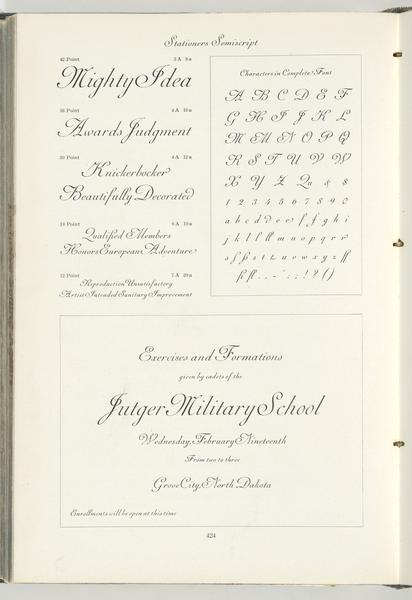 Stationers Semiscript
42 Point 3 A 8 a
Mighty Idea
36 Point 4 A 10 a
Awards Judgment
30 Point 4 A 12 a
Knickerbocker
Beautifully Decorated
18 Point 6 A 19 a
Qualified Members
Honors European Adventure
12 Point 7 A 29 a
Reproduction Unsatisfactory
Artist Intended Sanitary Improvement
Characters in Complete Font
A B C D E F
G H I J K L
M M N O P Q
R S T U V W
X Y Z Qu & $
1 2 3 4 5 6 7 8 9 0
a b c d d e e f f g h i
j k l ll m n o p q r r
s t t u v w x y z ff
fi fl . , - ' : ; ! ? ( )
Exercises and Formations
given by cadets of the
Jutger Military School
Wednesday, February Nineteenth
From two to three
Grove City, North Dakota
Enrollments will be open at this time
424